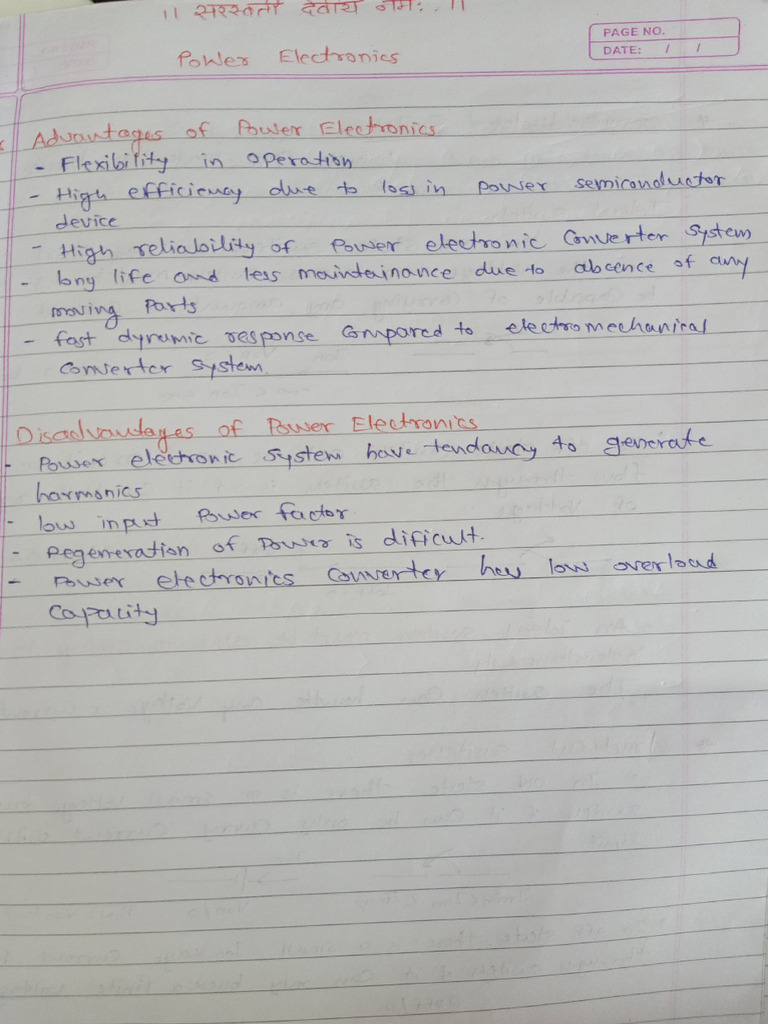 ।। सरस्वती देवीय नमः ।।
PAGE NO.
DATE: / /
Power Electronics
Advantages of Power Electronics
- Flexibility in operation
- High efficiency due to loss in power semiconductor
device
- High reliability of Power electronic Converter System
- long life and less maintainance due to abscence of any
moving Parts
- fast dynamic response Compared to electromechanical
Converter System.
Disadvantages of Power Electronics
- Power electronic System have tendancy to generate
harmonics
- low input Power factor
- Regeneration of Power is dificult.
- Power electronics Converter has low overload
Capacity